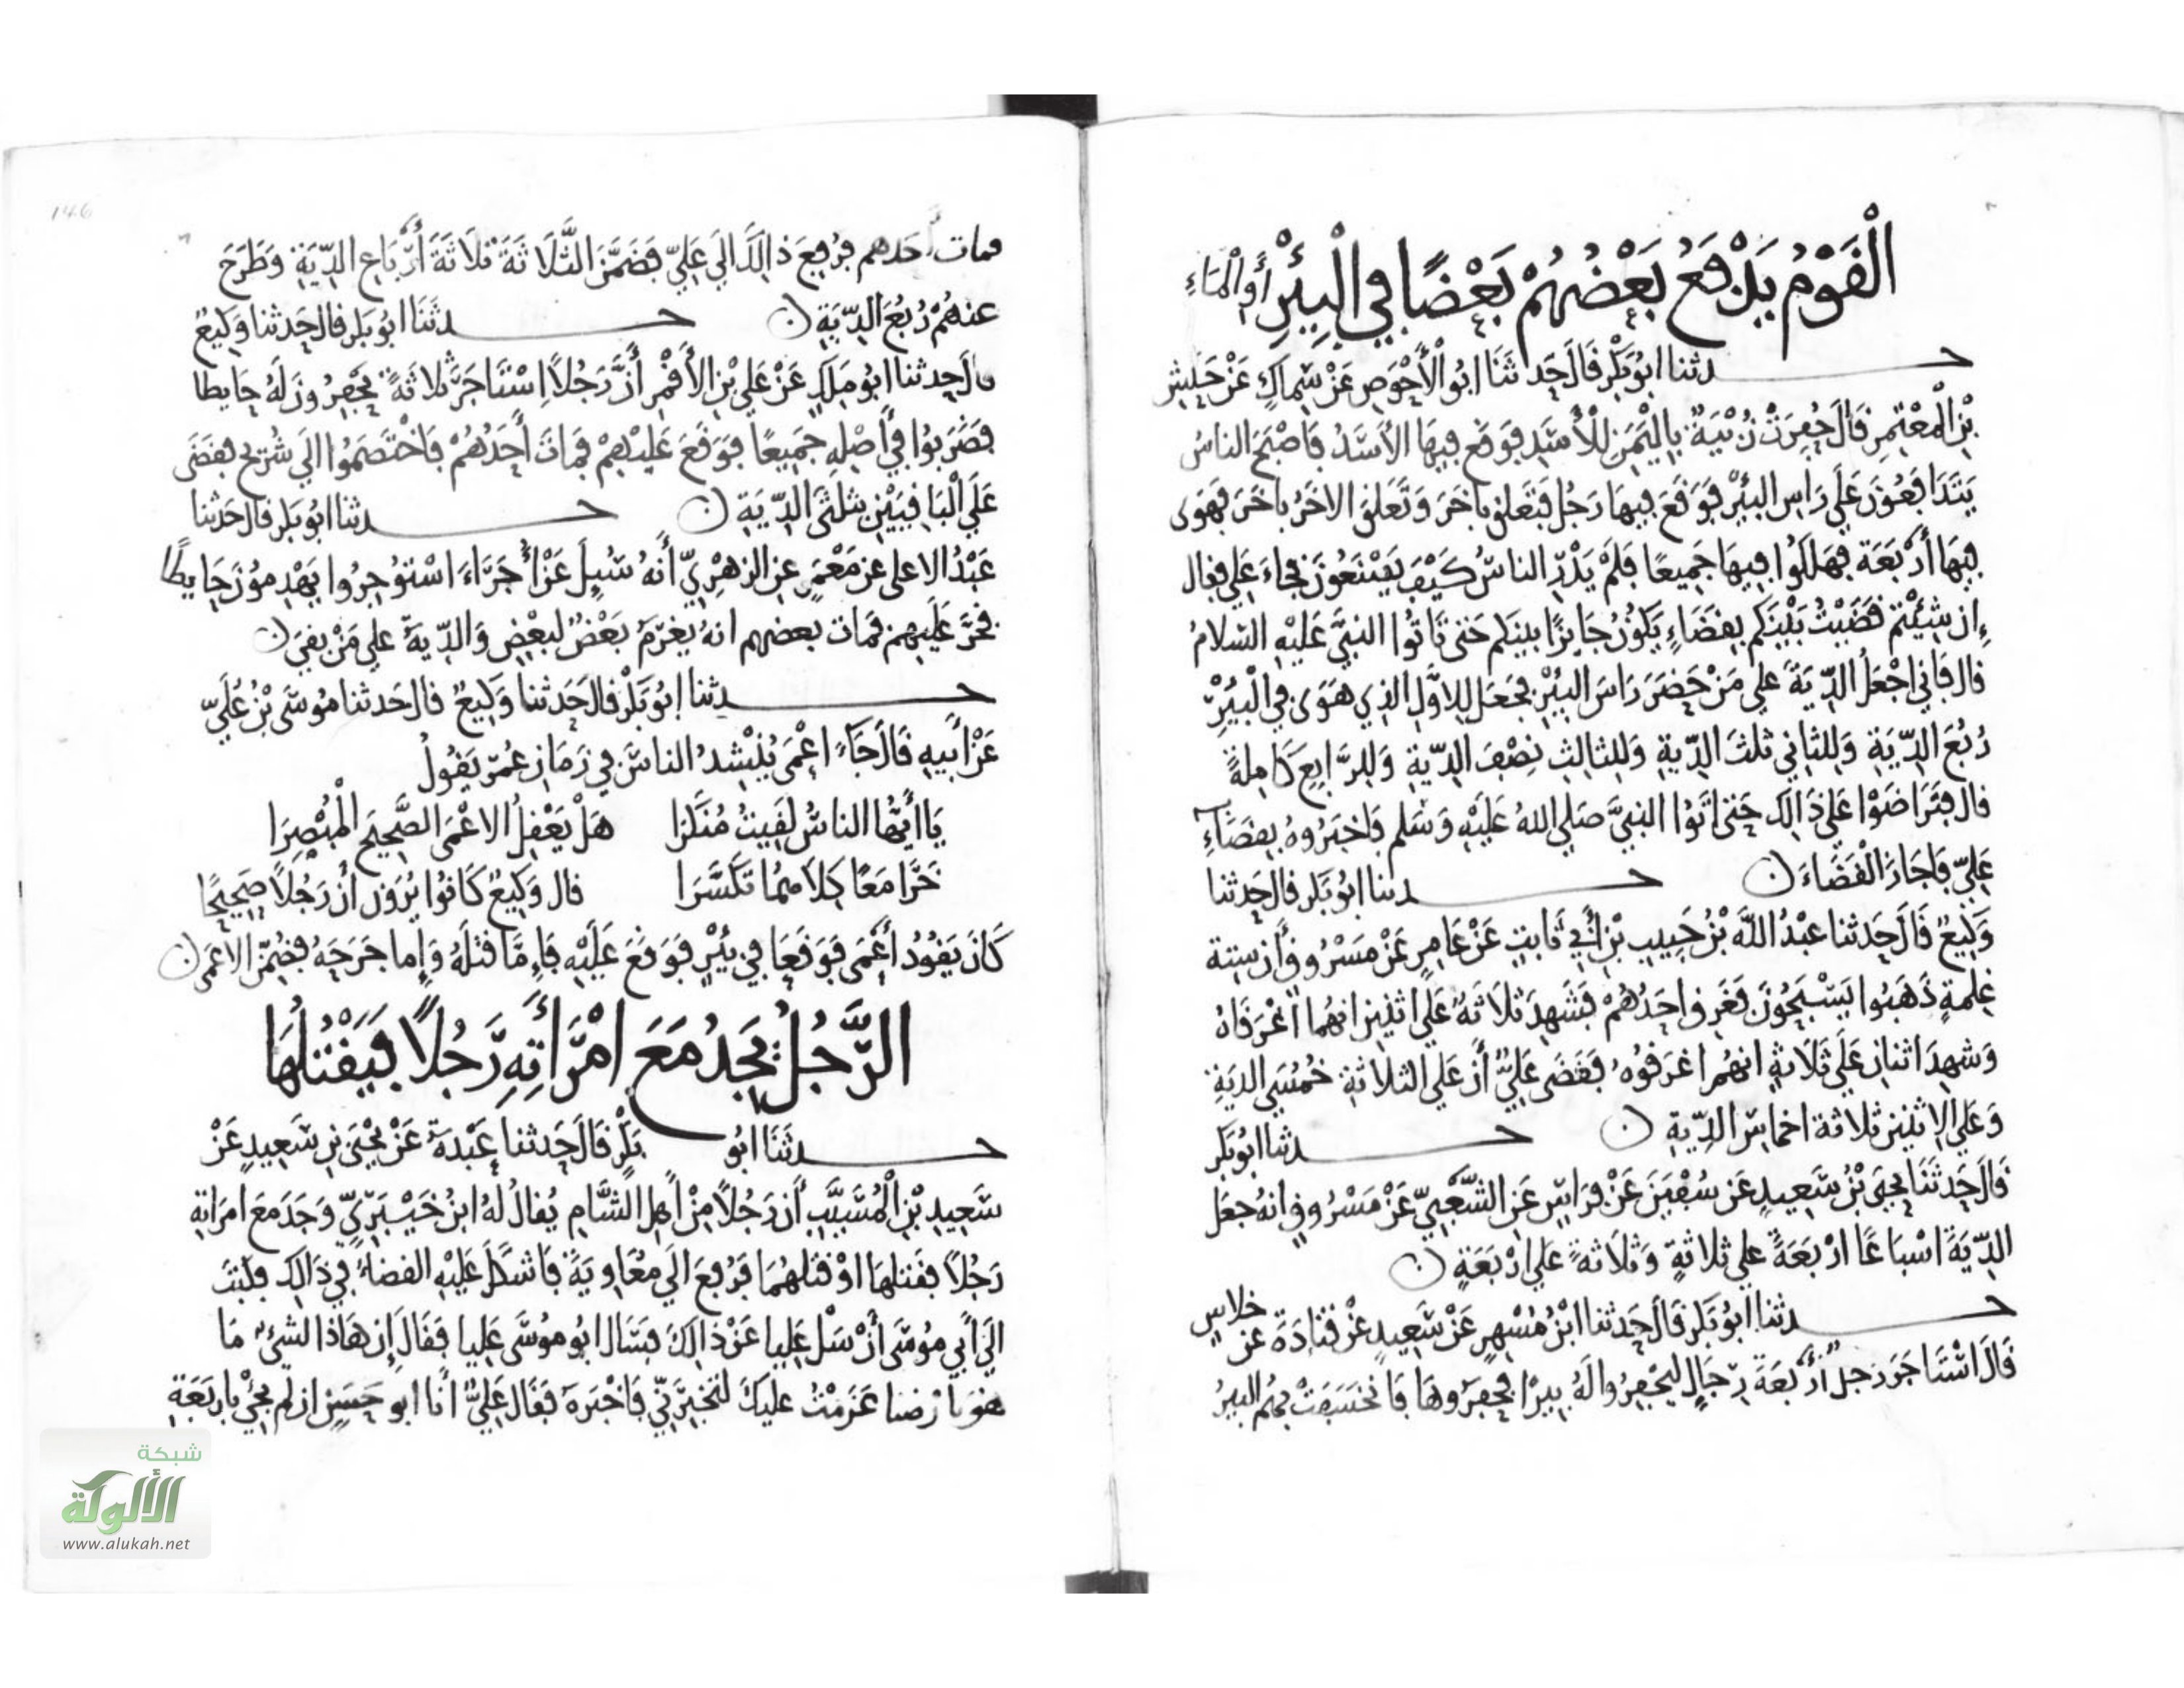 الْقَوْمُ يَدْفَعُ بَعْضُهُمْ بَعْضًا فِي الْبِئْرِ أَوِ الْمَاءِ
حدثنا ابُو بَكْرٍ قَالَ حَدثَنَا ابُو الْأَحْوَصِ عَنْ سِمَاكٍ عَنْ حَنَشِ
بْنِ الْمُعْتَمِرِ قَالَ حُفِرَتْ زُبْيَةٌ بِالْيَمَنِ لِلْأَسَدِ فَوَقَعَ فِيهَا الأَسَدُ فَاصْبَحَ الناسُ
يَتَدَافَعُونَ عَلَى رَاسِ البئْرِ فَوَقَعَ فِيهَا رَجُل فَتَعَلق بِاخَرَ وَتَعَلق الاخَرُ بِاخَرَ فَهَوَى
فِيهَا أَرْبَعَة فَهَلَكُوا فِيهَا جَمِيعًا فَلَمْ يَدْرِ الناسُ كَيْفَ يَصْنَعُونَ فجَاءَ عَلِي فقال
إِن شِئْتُم قَضَيْتُ بَيْنَكم بِقَضَاءٍ يَكُونُ جَايزًا بينكم حَتى تَاتُوا النبيَّ عَلَيْهِ السلامُ
قال فَاني اجْعَلُ الدِّيَةَ عَلى مَنْ حَضَرَ رَاسَ البئْرِ فجَعَل لِلاوَّلِ الذِي هَوَى فِي الْبِئْرِ
رُبْعَ الدِّيَةِ وَلِلثاني ثلثَ الدِّيةِ وَلِلثالِثِ نِصْفَ الدِّيةِ وَلِلرَّابِعِ كَامِلةً
قال فتَرَاضَوْا عَلى ذَالِكَ حَتى اتَوُا النبيَّ صَلى اللهُ عَلَيْهِ وَسَلم فاخبَرُوهُ بِقَضَاءِ
عَلِيٍّ فاجَازَ الْقَضَاءَ ۝ حدثنا ابُو بَكر قالَ حَدثنا
وَكِيعٌ قَالَ حَدثنا عَبْدُ اللَّهِ بْنُ حَبِيبِ بْنِ أَبِي ثَابِتٍ عَنْ عَامِرٍ عَنْ مَسْرُوقٍ أن سِتة
غِلمَةٍ ذَهَبُوا يَسْبَحُونَ فَغَرِق احَدُهُمْ فَشَهِدَ ثَلاثَةٌ عَلَى اثنين انهُما اغْرَقَاهُ
وَشهِدَ اثنان عَلَى ثَلاثةٍ انهُم اغرَقوُه فَقَضَى عَلِيٌّ أَنَّ عَلى الثلاثةِ خُمُسَيِ الديَةِ
وَعَلى الاثنين ثلاثة اخماسِ الدِّيةِ ۝ حدثنا ابُو بَكر
قَالَ حَدثَنَا يحيَى بْنُ سَعِيدٍ عَن سُفيَنَ عَنْ فِرَاسٍ عَنِ الشَّعْبِيِّ عَنْ مَسْرُوقٍ انهُ جعَل
الدِّيَةَ اسْبَاعًا ارْبَعَةً على ثلاثةٍ وَثلاثةً عَلى ارْبَعَةٍ ۝
حدثنا ابُو بَكر قَالَ حَدثنا ابْنُ مُسْهِرٍ عَنْ سَعِيدٍ عَنْ قتَادَةَ عَن خلاسٍ
قَالَ اسْتَاجَرَ رَجل أرْبَعَةَ رِجَالٍ ليَحْفِرُوا لَهُ بِيرًا فحَفَرُوهَا فَانخَسَفَتْ بِهُم البيرُ
فمات أحَدهم فرُفِعَ ذالكَ الَى عَلِيٍّ فَضَمَّنَ الثَّلاثَةَ ثَلاثَةَ أَرْبَاعِ الدِّيَةِ وَطَرَحَ
عنهُمْ رُبُعَ الدِّيَةِ ۝ حدثَنَا ابُو بَكر قالَ حَدثنا وَكِيعٌ
قالَ حَدثنا ابُو مَلَكٍ عَنْ عَلي بْنِ الأَقْمَرِ أَنَّ رَجُلاً اِسْتَاجَرَ ثلاثَةً يَحْفِرُونَ لَهُ حَايطا
فضَرَبُوا فِي أَصْلِهِ جَمِيعًا فوَقَعَ عَلَيْهِمْ فمَاتَ أَحَدُهُمْ فاخْتَصَمُوا الَى شُرَيح فقضَى
عَلَى الْبَاقِيَيْنِ بثلُثَيِ الدِّيَةِ ۝ حدثنا ابُو بَكر قالَ حَدثنا
عَبْدُ الاعلى عن مَعْمَرٍ عن الزهْرِيِّ أَنهُ سُئِلَ عَنْ أُجَرَاءَ اسْتُوجِرُوا يَهْدِمُونَ حَايِطًا
فخَرَّ عَلَيهِم فمات بعضهم انهُ يَغرَمُ بَعْضٌ لبَعْضٍ وَالدِّيَةُ عَلى مَنْ بقيَ ۝
حدثنا ابُو بَكْر قالَ حَدثنا وَكِيعٌ قالَ حَدثنا مُوسَى بْنُ عُلَيٍّ
عَنْ أَبِيهِ قَالَ جَاءَ اعْمَى يُنْشدُ الناسَ فِي زَمَانِ عُمَرَ يَقُولُ
يَا أَيُّهَا الناسُ لَقِيتُ مُنْكَرَا هَلْ يَعْقِلُ الاعْمَى الصَّحِيحَ الْمُبْصِرَا
خَرَّا مَعًا كِلاهُمَا تكَسَّرَا قال وَكِيعٌ كَانُوا يُرَوْنَ أَنَّ رَجُلاً صَحِيحًا
كَانَ يَقُودُ أَعْمَى فَوَقَعَا فِي بِئْرٍ فَوَقَعَ عَلَيْهِ فَإِمَّا قَتَلَهُ وَإِما جَرَحَهُ فضُمِّنَ الاعْمَى ۝
الرَّجُلُ يَجِدُ مَعَ امْرَأَتِهِ رَجُلاً فَيَقْتُلُهَا
حدثَنَا ابُو بَكْرٍ قَالَ حَدثنا عَبْدَةُ عَنْ يَحْيَى بنِ سَعِيدٍ عَنْ
سَعِيدِ بْنِ الْمُسَيَّبِ أَن رَجُلاً مِنْ أَهلِ الشَّامِ يُقالُ لَهُ ابنُ خَيْبَرِيٍّ وَجَدَ مَعَ امرَاتِهِ
رَجُلاً فقتلهَا اوْ قتَلهُمَا فرُفِعَ الَى مُعَاوِيَةَ فَاشكَلَ عَلَيْهِ القضاءُ فِي ذَالِكَ فكَتبَ
الَى أَبِي مُوسَى أَنْ سَلْ عَلِيا عَنْ ذَالِكَ فسَالَ ابُو مُوسَى عَلِيا فَقَالَ إِن هَاذا الشيْءَ مَا
هُوَ بارْضنا عَزَمْتُ عَليكَ لَتُخبِرَنِّي فَاخْبَرَهُ فَقَالَ عَلِيٌّ أَنَا ابُو حَسَنٍ ان لَم يَجئْ بِاربَعَةِ
146
شبكة
الألوكة
www.alukah.net